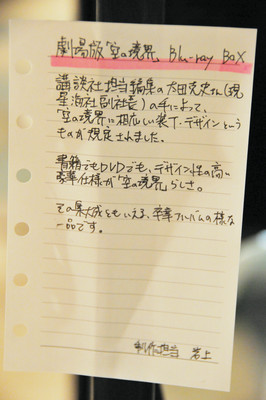 劇場版「空の境界」Blu-ray BOX
講談社担当編集の太田克史さん(現
星海社副社長)の手によって、
「空の境界」に相応しい装丁・デザインという
ものが規定されました。
書籍でもDVDでも、デザイン性の高い
豪華仕様が「空の境界」らしさ。
その集大成ともいえる、卒業アルバムの様な
一品です。
制作担当 岩上